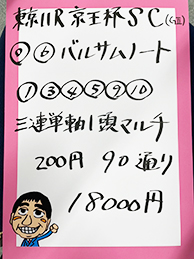 東京11R 京王杯SC(GⅡ)
◎⑥バルサムノート
①③④⑤⑨⑩
三連単軸1頭マルチ
200円 90通り
18000円